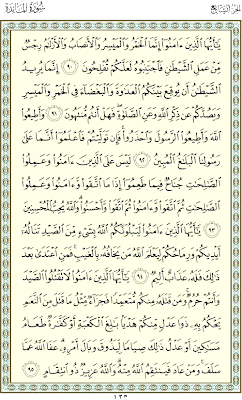 سُورَةُ المَائِدَة
الجُزْءُ السَّابِعُ
يَٰٓأَيُّهَا ٱلَّذِينَ ءَامَنُوٓا۟ إِنَّمَا ٱلْخَمْرُ وَٱلْمَيْسِرُ وَٱلْأَنصَابُ وَٱلْأَزْلَٰمُ رِجْسٌ
مِّنْ عَمَلِ ٱلشَّيْطَٰنِ فَٱجْتَنِبُوهُ لَعَلَّكُمْ تُفْلِحُونَ ٩٠ إِنَّمَا يُرِيدُ
ٱلشَّيْطَٰنُ أَن يُوقِعَ بَيْنَكُمُ ٱلْعَدَٰوَةَ وَٱلْبَغْضَآءَ فِى ٱلْخَمْرِ وَٱلْمَيْسِرِ
وَيَصُدَّكُمْ عَن ذِكْرِ ٱللَّهِ وَعَنِ ٱلصَّلَوٰةِ فَهَلْ أَنتُم مُّنتَهُونَ ٩١ وَأَطِيعُوا۟
ٱللَّهَ وَأَطِيعُوا۟ ٱلرَّسُولَ وَٱحْذَرُوا۟ فَإِن تَوَلَّيْتُمْ فَٱعْلَمُوٓا۟ أَنَّمَا عَلَىٰ
رَسُولِنَا ٱلْبَلَٰغُ ٱلْمُبِينُ ٩٢ لَيْسَ عَلَى ٱلَّذِينَ ءَامَنُوا۟ وَعَمِلُوا۟
ٱلصَّٰلِحَٰتِ جُنَاحٌ فِيمَا طَعِمُوٓا۟ إِذَا مَا ٱتَّقَوا۟ وَّءَامَنُوا۟ وَعَمِلُوا۟
ٱلصَّٰلِحَٰتِ ثُمَّ ٱتَّقَوا۟ وَّءَامَنُوا۟ ثُمَّ ٱتَّقَوا۟ وَّأَحْسَنُوا۟ وَٱللَّهُ يُحِبُّ ٱلْمُحْسِنِينَ
٩٣ يَٰٓأَيُّهَا ٱلَّذِينَ ءَامَنُوا۟ لَيَبْلُوَنَّكُمُ ٱللَّهُ بِشَىْءٍ مِّنَ ٱلصَّيْدِ تَنَالُهُۥٓ
أَيْدِيكُمْ وَرِمَاحُكُمْ لِيَعْلَمَ ٱللَّهُ مَن يَخَافُهُۥ بِٱلْغَيْبِ فَمَنِ ٱعْتَدَىٰ بَعْدَ
ذَٰلِكَ فَلَهُۥ عَذَابٌ أَلِيمٌ ٩٤ يَٰٓأَيُّهَا ٱلَّذِينَ ءَامَنُوا۟ لَا تَقْتُلُوا۟ ٱلصَّيْدَ
وَأَنتُمْ حُرُمٌ وَمَن قَتَلَهُۥ مِنكُم مُّتَعَمِّدًا فَجَزَآءٌ مِّثْلُ مَا قَتَلَ مِنَ ٱلنَّعَمِ
يَحْكُمُ بِهِۦ ذَوَا عَدْلٍ مِّنكُمْ هَدْيًۢا بَٰلِغَ ٱلْكَعْبَةِ أَوْ كَفَّٰرَةٌ طَعَامُ
مَسَٰكِينَ أَوْ عَدْلُ ذَٰلِكَ صِيَامًا لِّيَذُوقَ وَبَالَ أَمْرِهِۦ عَفَا ٱللَّهُ عَمَّا
سَلَفَ وَمَنْ عَادَ فَيَنتَقِمُ ٱللَّهُ مِنْهُ وَٱللَّهُ عَزِيزٌ ذُو ٱنتِقَامٍ ٩٥
١٢٣